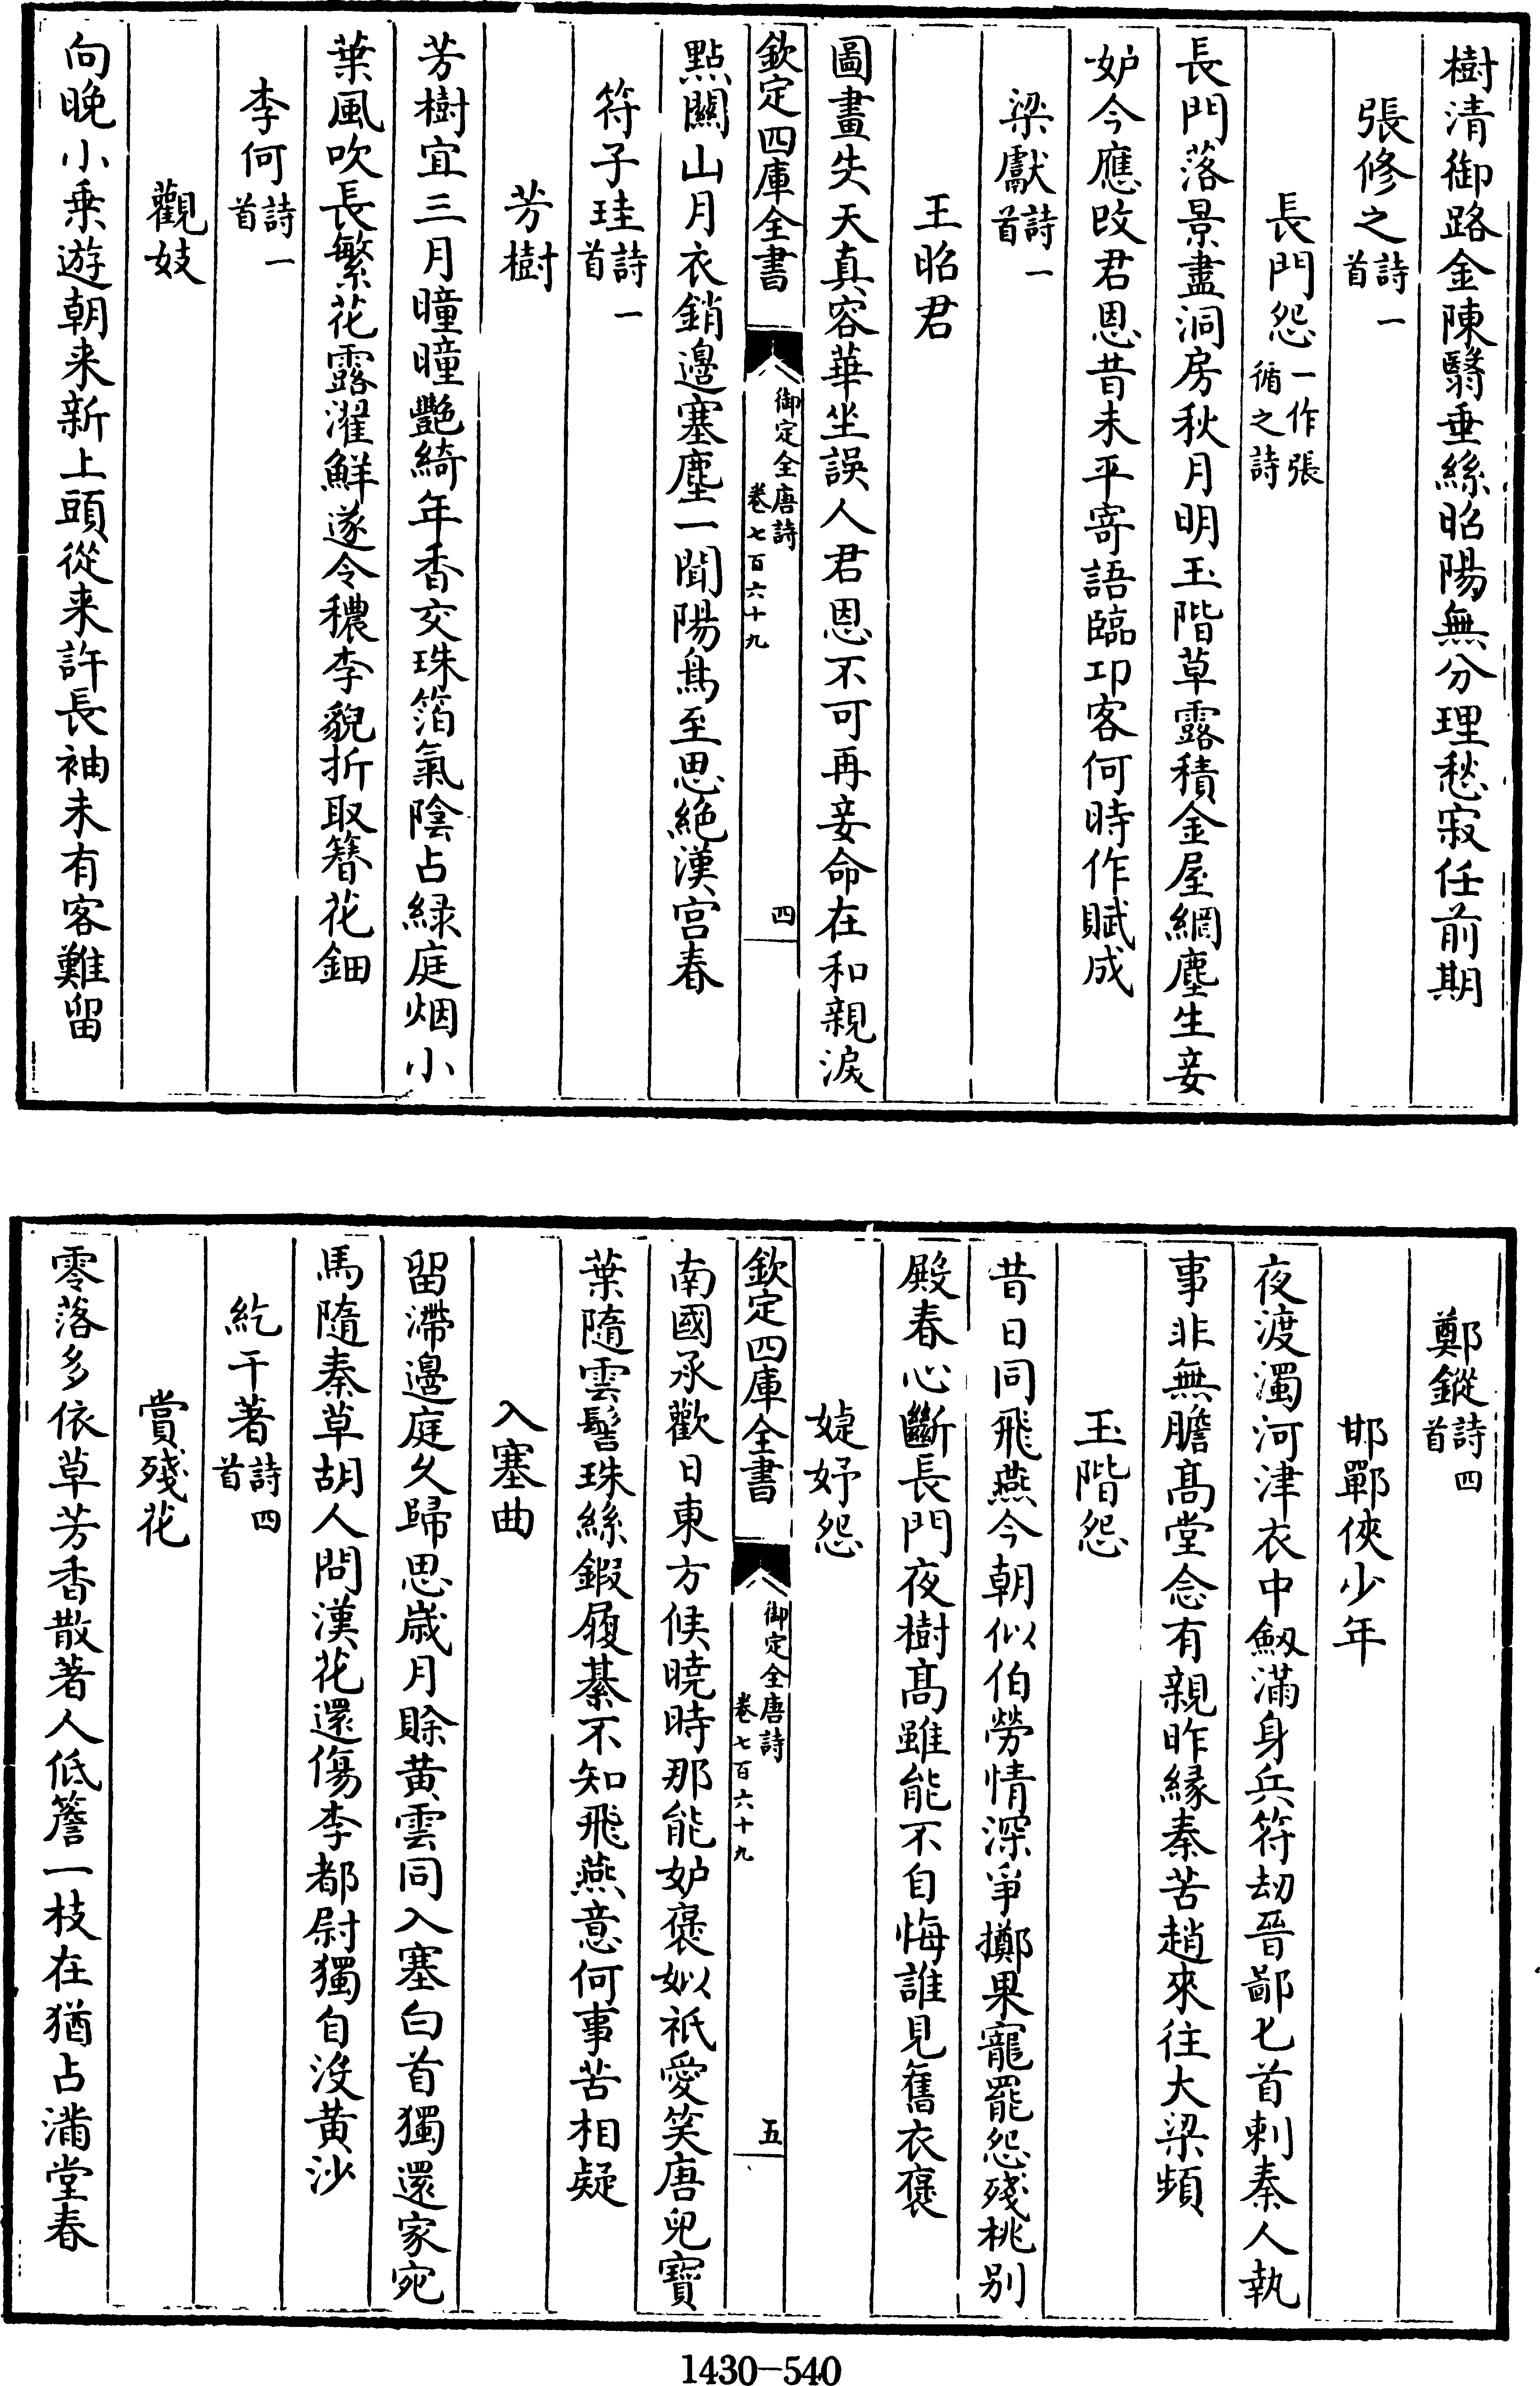 樹清御路金陳翳垂絲昭陽無分理愁寂任前期
張修之詩一首
長門怨一作張循之詩
長門落景盡洞房秋月明玉階草露積金屋網塵生妾
妒今應改君恩昔未平寄語臨卭客何時作賦成
梁獻詩一首
王昭君
圖畫失天真容華坐誤人君恩不可再妾命在和親淚
欽定四庫全書 御定全唐詩 卷七百六十九 四
點關山月衣銷邊塞塵一聞陽鳥至思絶漢宫春
符子珪詩一首
芳樹
芳樹宜三月曈曈艷綺年香交珠箔氣陰占緑庭烟小
葉風吹長繁花露濯鮮遂令穠李貌折取簪花鈿
李何詩一首
觀妓
向晚小乗遊朝来新上頭從来許長袖未有客難留
鄭鏦詩四首
邯鄲俠少年
夜渡濁河津衣中劔滿身兵符刧晉鄙匕首刺秦人執
事非無膽髙堂念有親昨縁秦苦趙來往大梁頻
玉階怨
昔日同飛燕今朝似伯勞情深爭擲果寵罷怨殘桃别
殿春心斷長門夜樹髙雖能不自悔誰見舊衣褒
婕妤怨
欽定四庫全書 御定全唐詩 卷七百六十九 五
南國承歡日東方候曉時那能妒褒姒祇愛笑唐兒寳
葉隨雲髻珠絲鍜履綦不知飛燕意何事苦相疑
入塞曲
留滯邊庭久歸思嵗月賖黄雲同入塞白首獨還家宛
馬隨秦草胡人問漢花還傷李都尉獨自没黄沙
紇干著詩四首
賞殘花
零落多依草芳香散著人低簷一枝在猶占滿堂春
1430-540